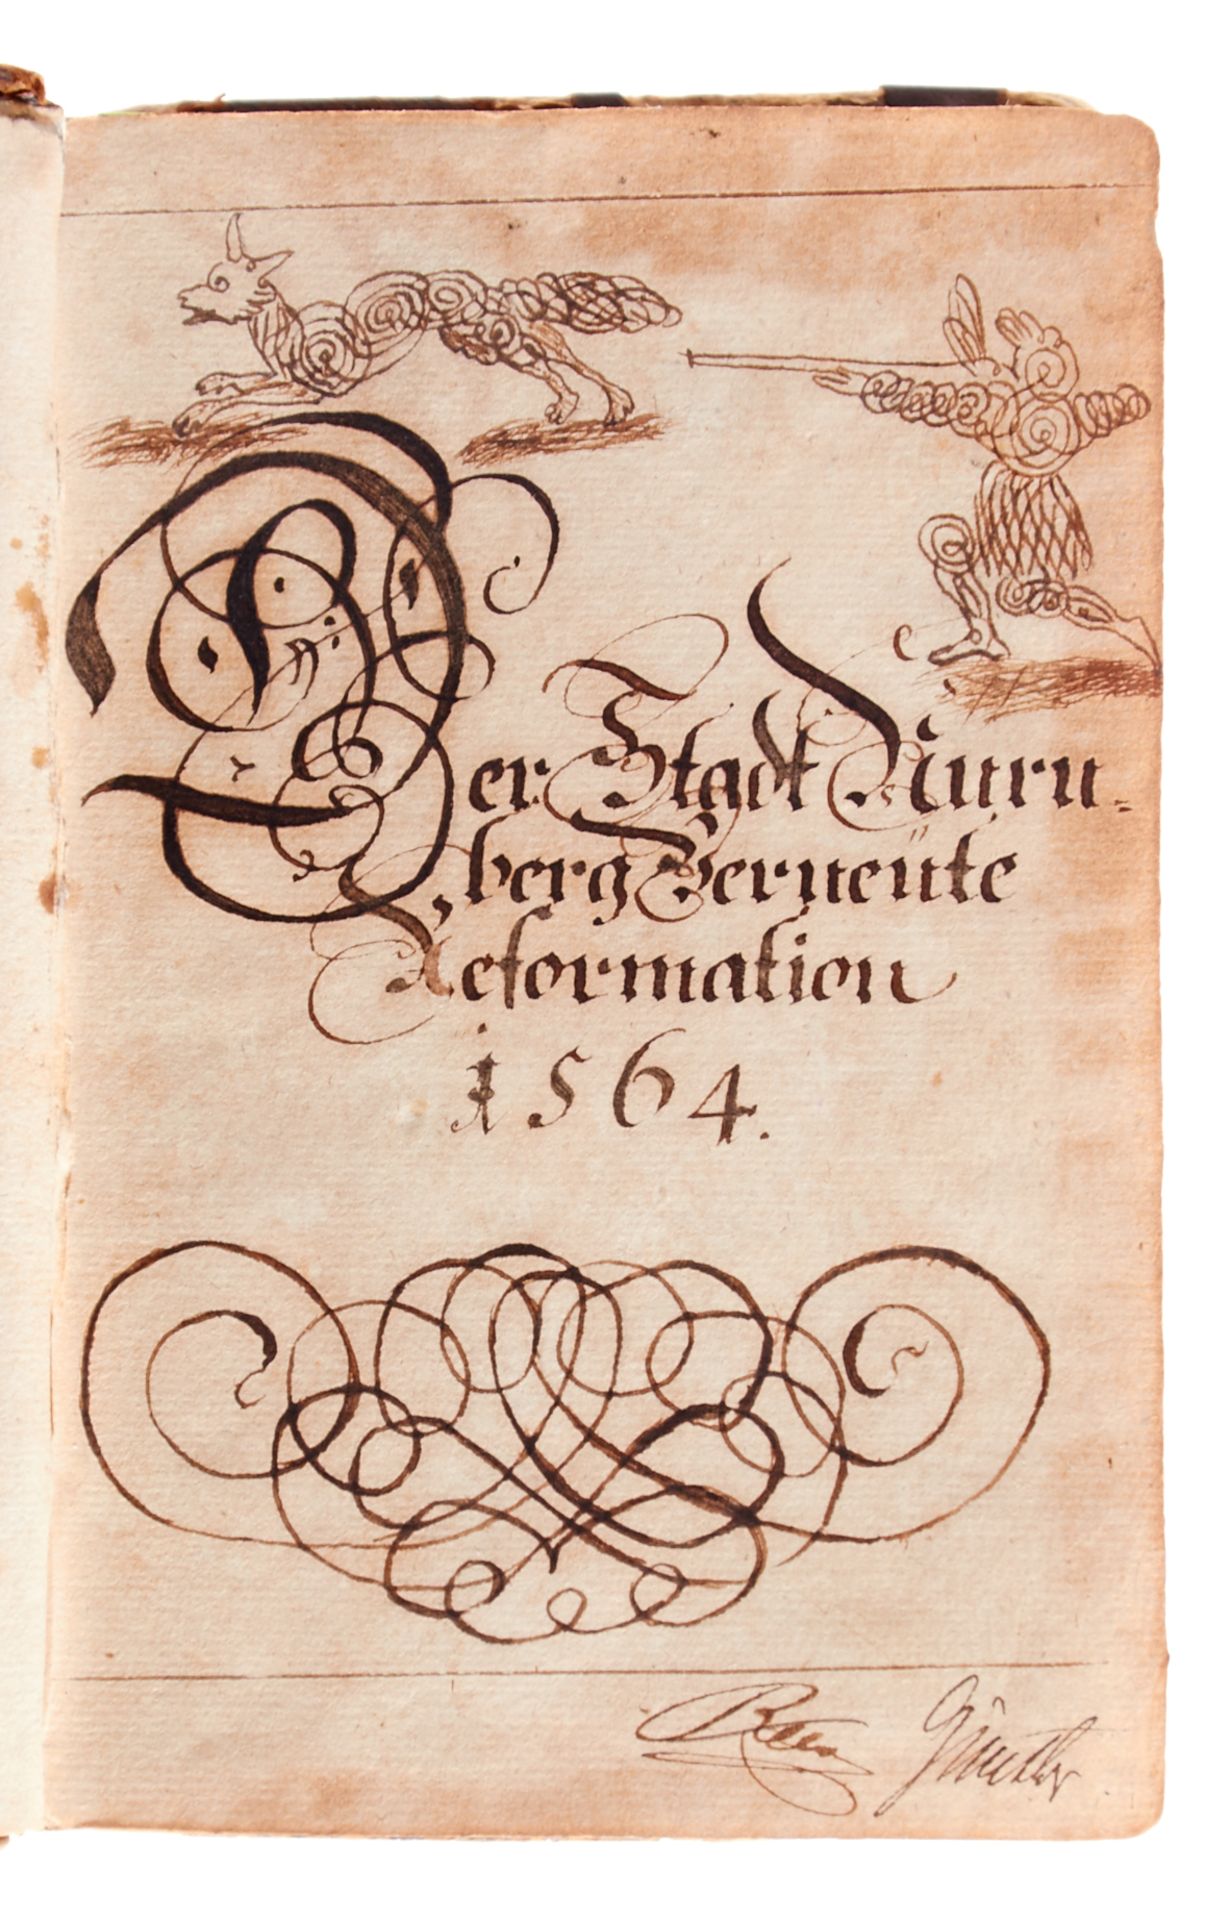 Der Stadt Nurn-
berg Verneüte
Reformation
1564.
Günther